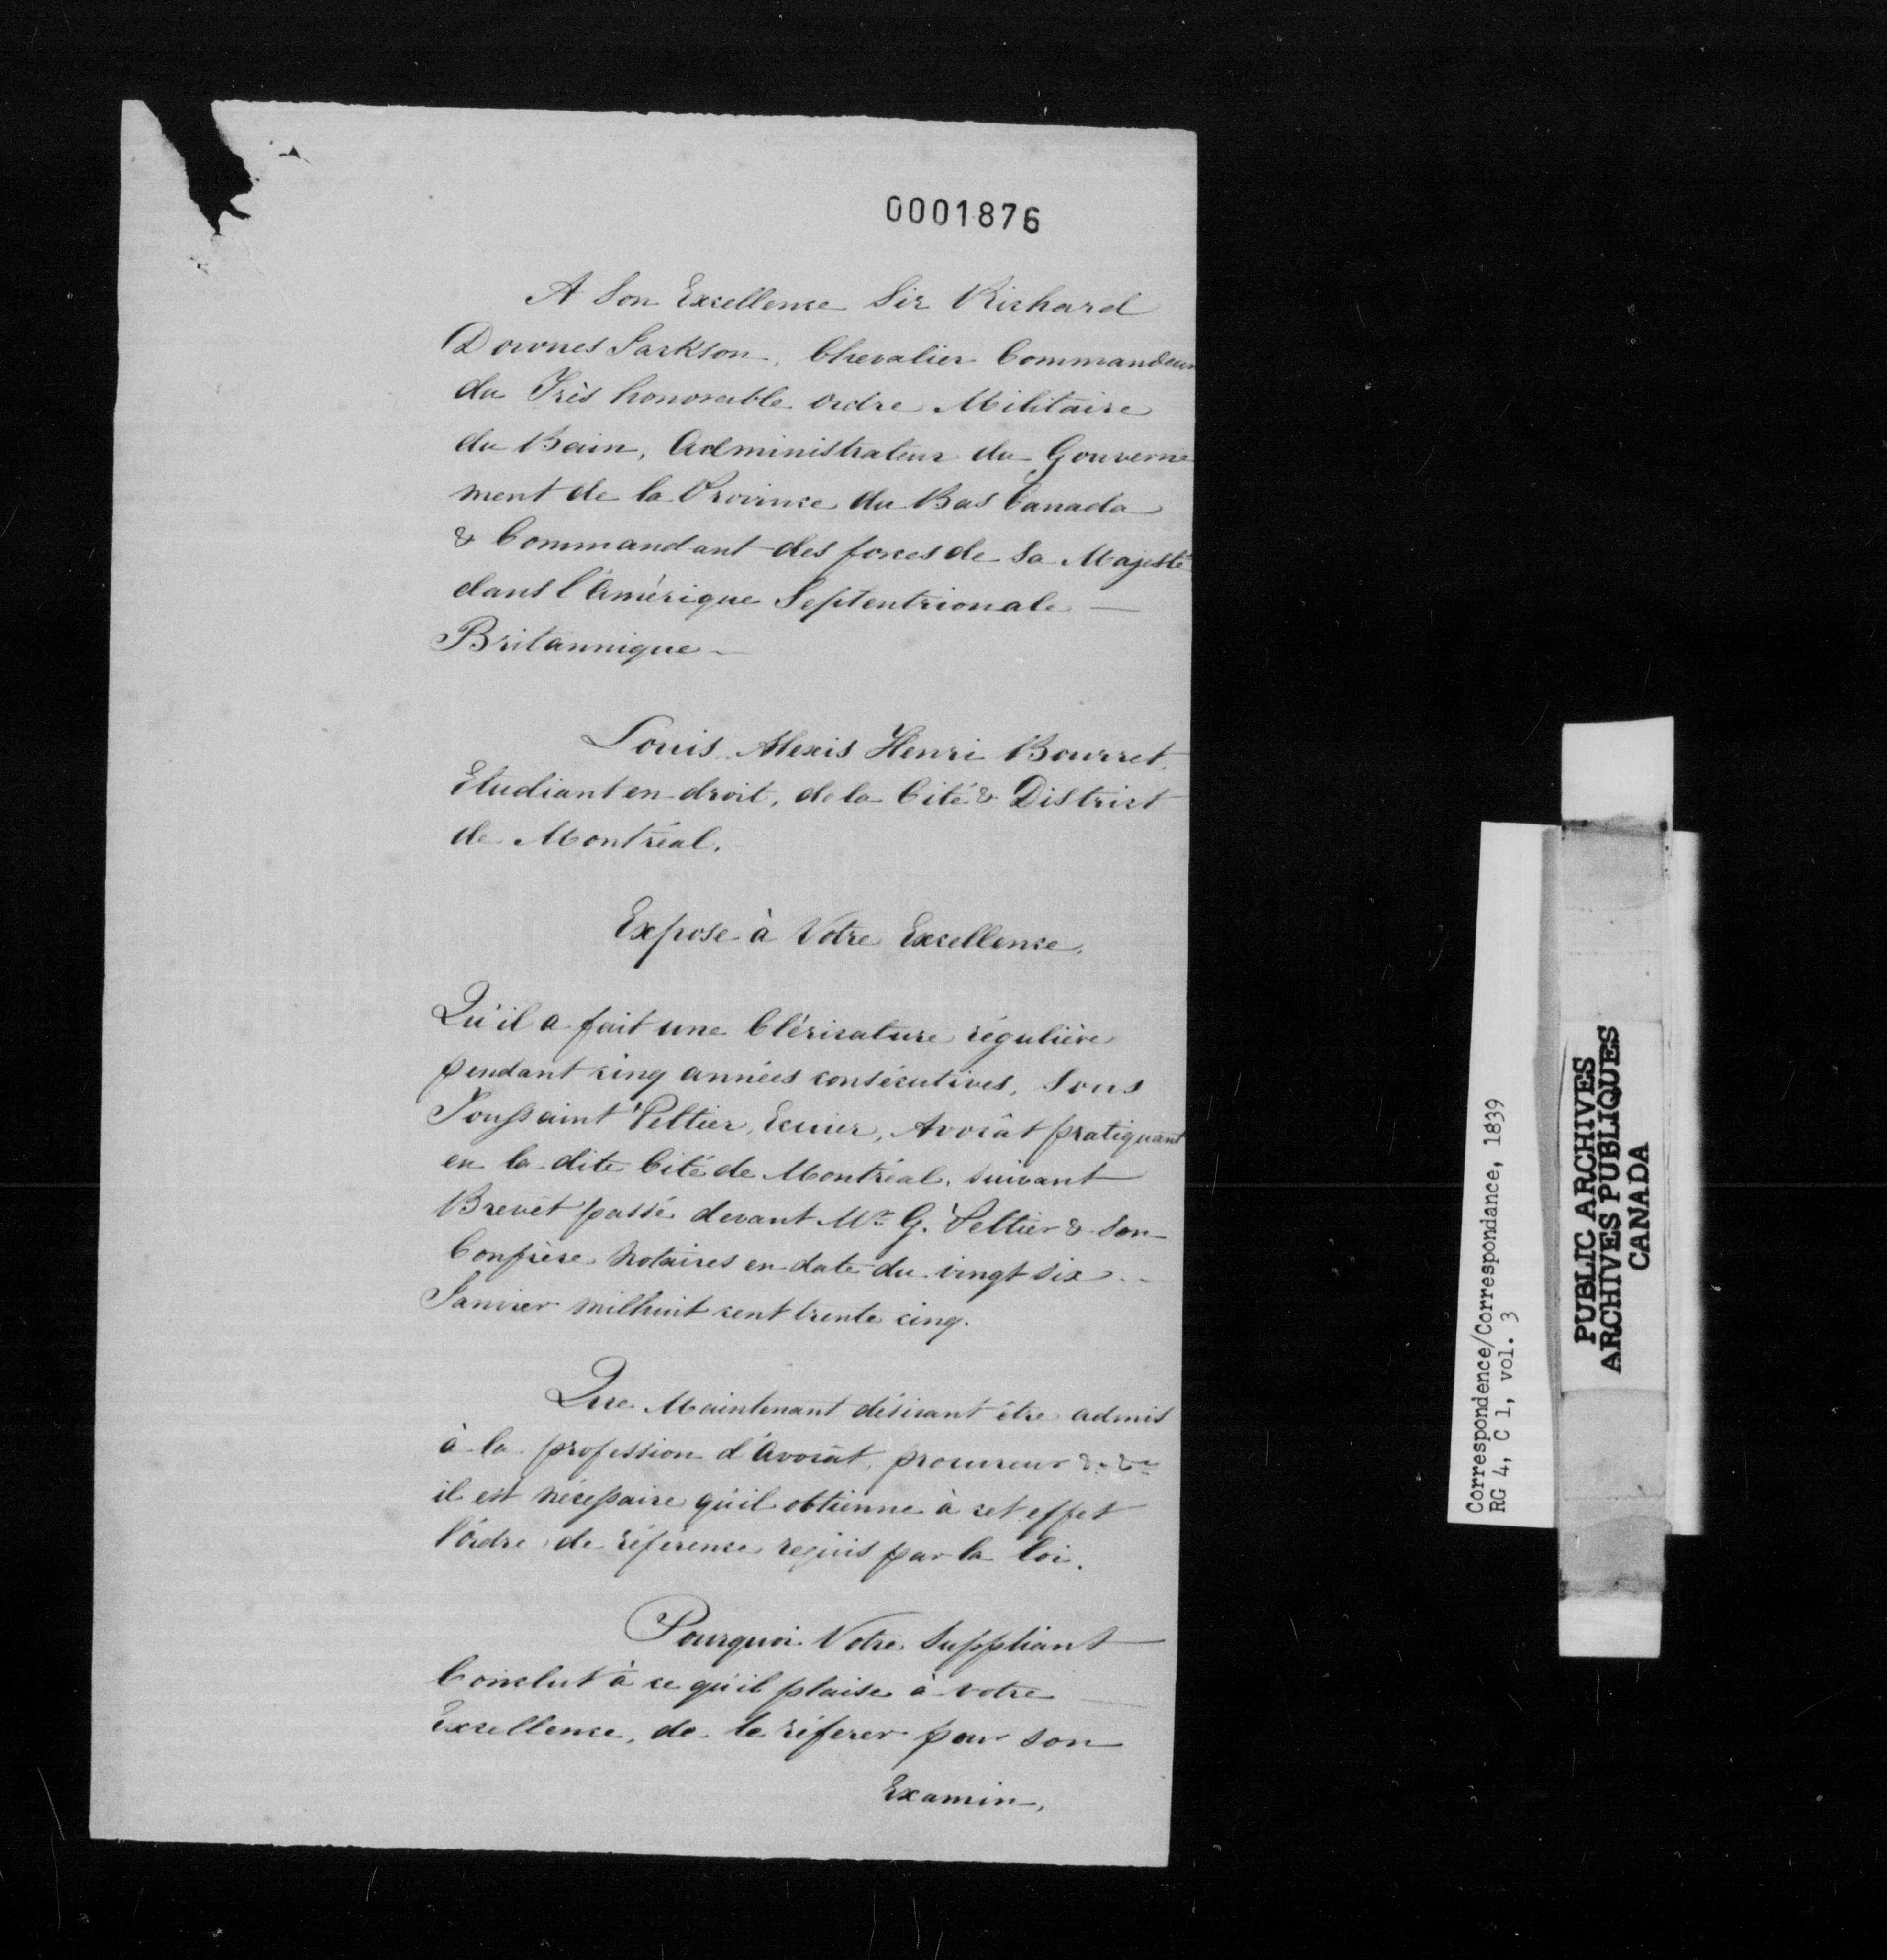 0001876
A Son Excellence Sir Richard
Downes Jackson, Chevalier Commandeur
du Très honorable ordre Militaire
du Bain, Administrateur du Gouverne
ment de la Province du Bas Canada
& Commandant des forces de Sa Majesté
dans l'Amérique Septentrionale —
Britannique —
Louis Alexis Henri Bourret
Etudiant en droit, de la Cité & District
de Montréal.
Expose à Votre Excellence,
Qu'il a fait une Cléricature régulière
pendant cinq années consécutives, Sous
Toussaint Peltier, Ecuier, Avocât pratiquant
en la dite Cité de Montréal, suivant
Brevêt passé devant Mtre G. Peltier & Son
Confrère Notaires en date du vingt six —
Janvier mil huit cent trente cinq.
Que Maintenant désirant être admis
à la profession d'Avocât, procureur &c &c
il est nécessaire qu'il obtienne à cet effet
l'ordre de référence requis par la loi.
Pourquoi Votre Suppliant
Conclut à ce qu'il plaise à votre —
Excellence, de le réferer pour son
Examin,
Correspondence/Correspondance, 1839
RG 4, C 1, vol. 3
PUBLIC ARCHIVES
ARCHIVES PUBLIQUES
CANADA